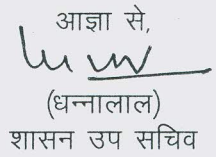 आज्ञा से,
(धन्नालाल)
शासन उप सचिव